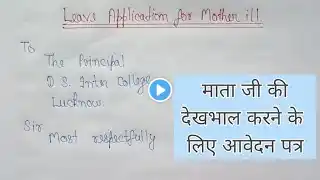 Leave Application for Mother ill
To
The Principal
D.S. Inter College
Lucknow
Sir
Most respectfully
माता जी की
देखभाल करने के
लिए आवेदन पत्र